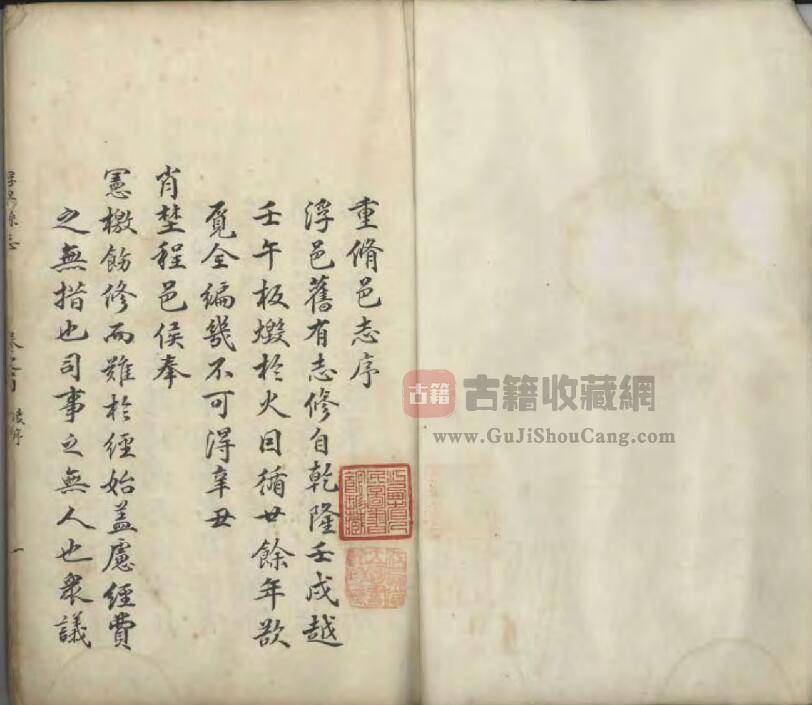 重脩邑志序
浮邑舊有志修自乾隆壬戌越
壬午板燬於火因循廿餘年欲
覓全編幾不可得辛丑
肖埜程邑侯奉
憲檄飭修而難於經始盖慮經費
之無措也司事之無人也衆議
浮梁縣志
一
古籍
古籍收藏網
www.GuJiShouCang.com